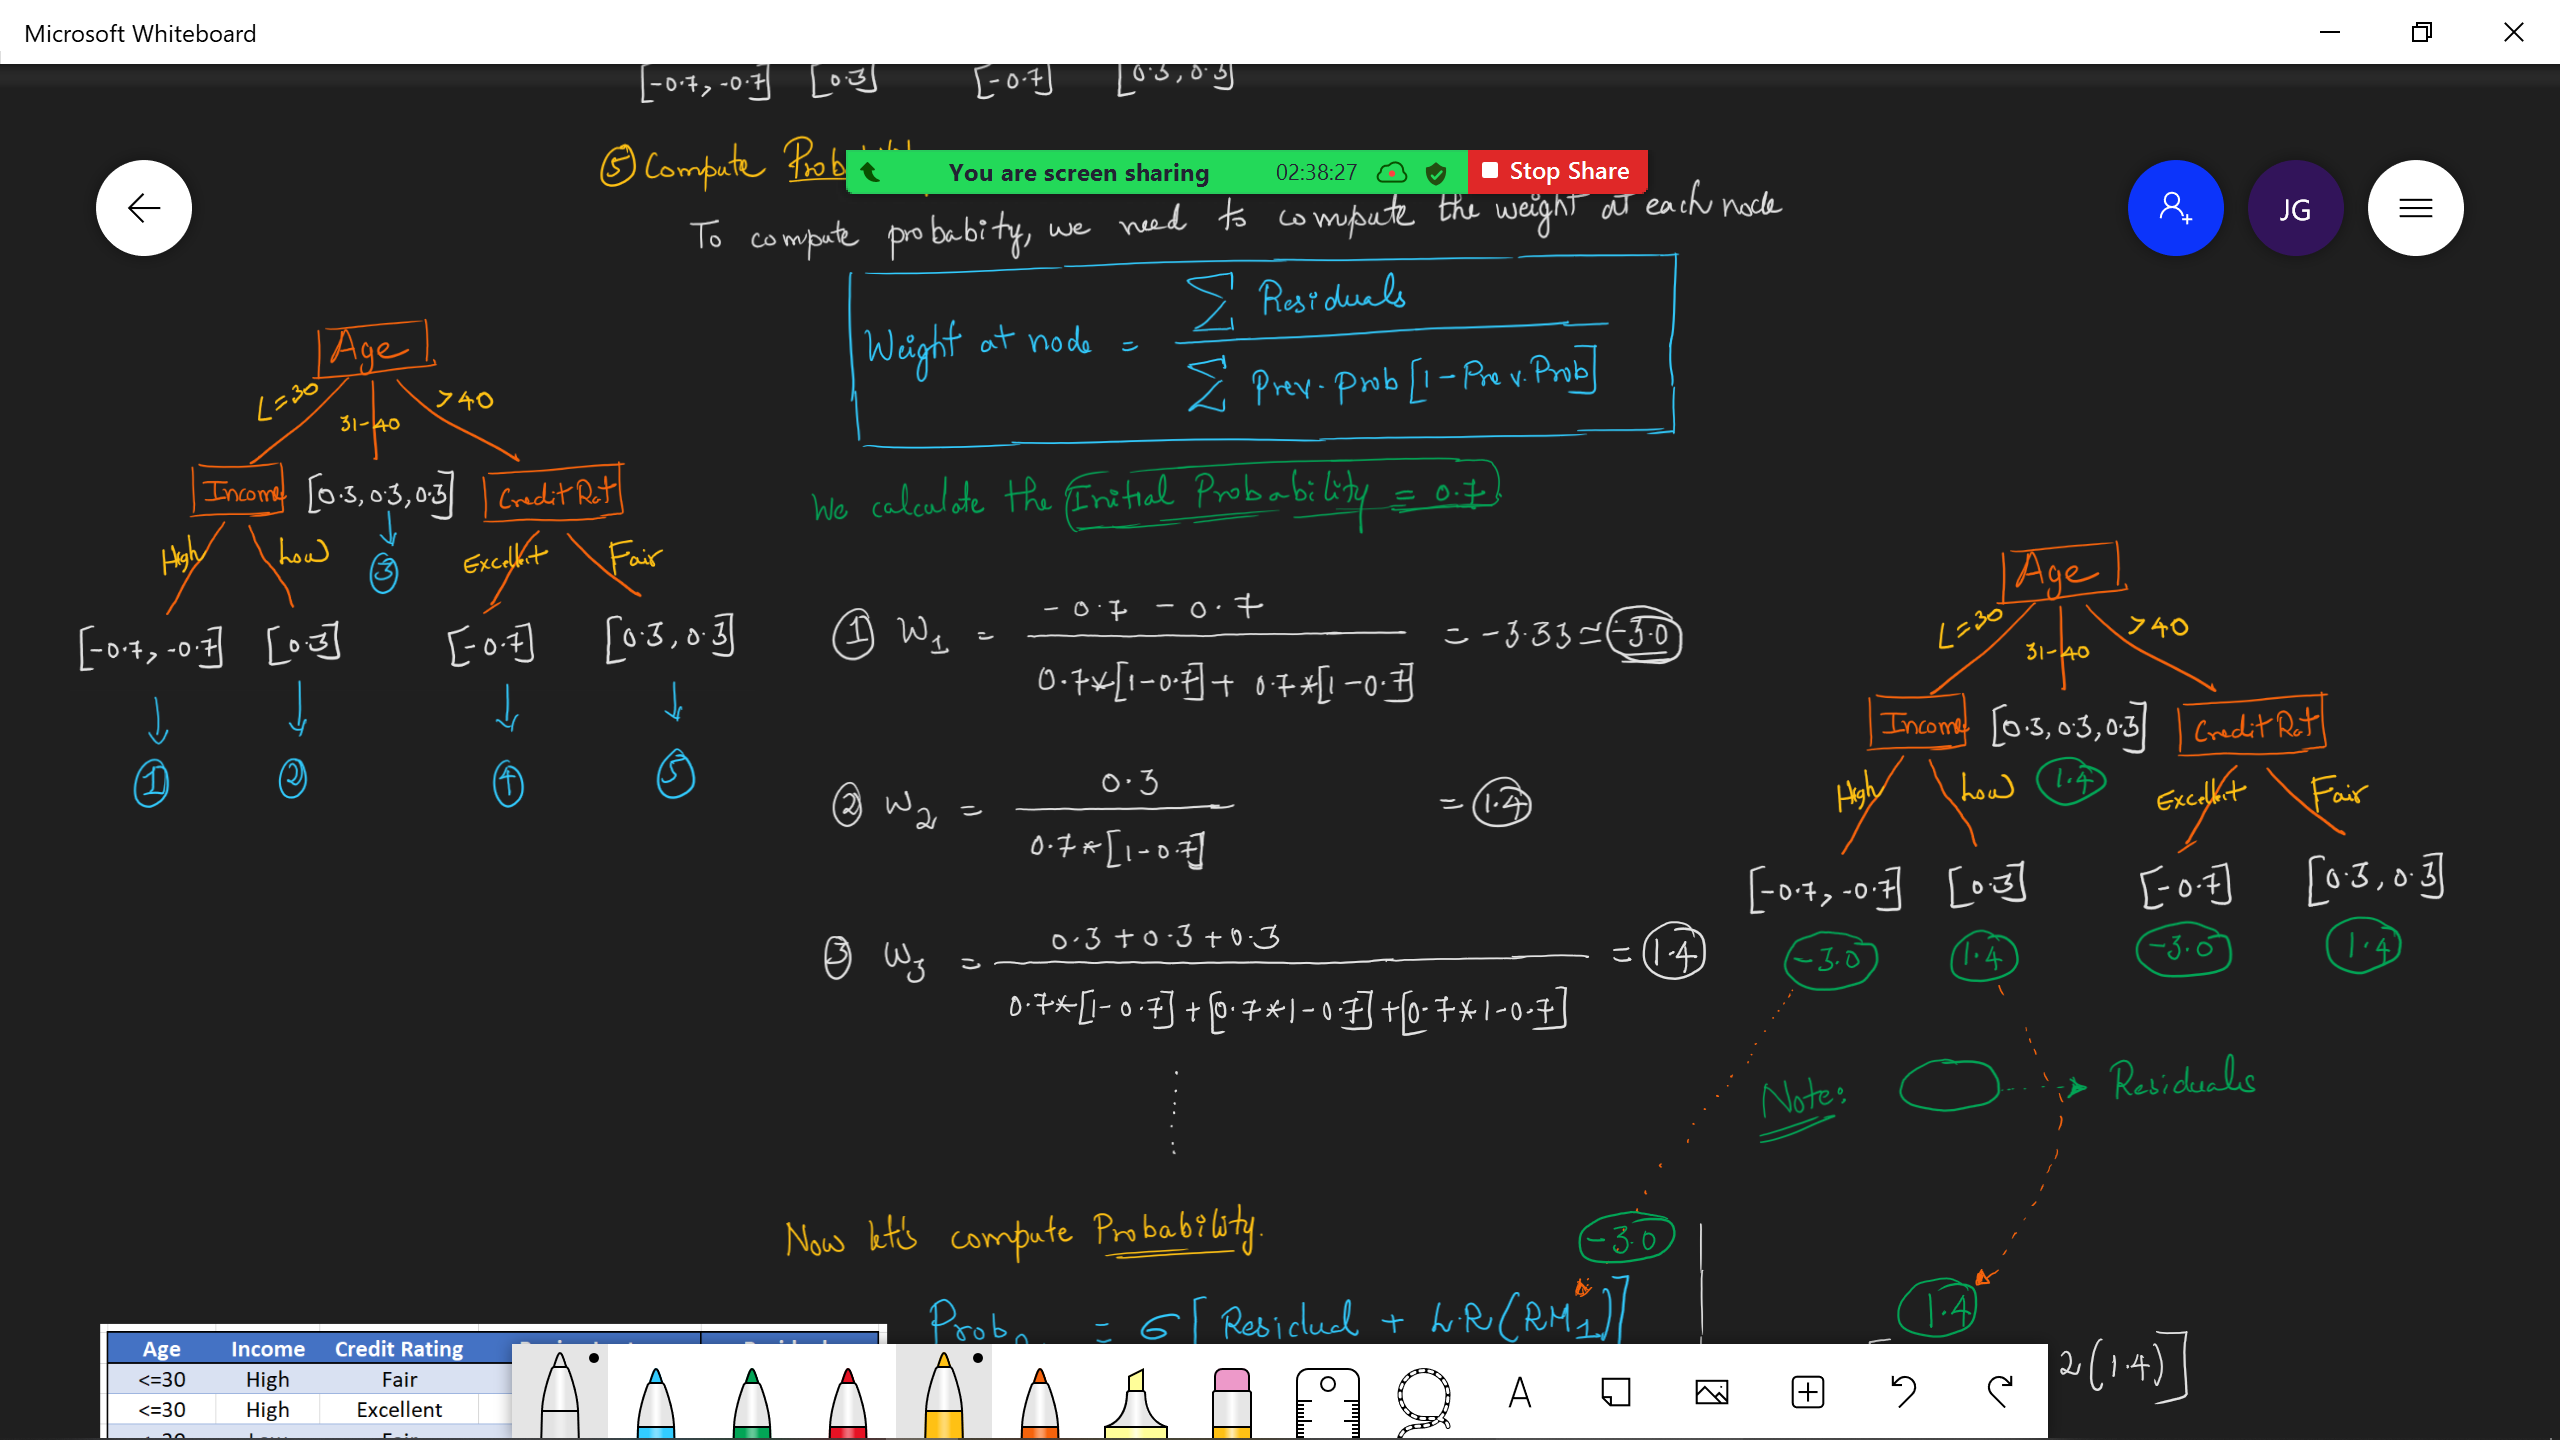 Microsoft Whiteboard
[-0.7, -0.7] [0.3] [-0.7] [0.3, 0.3]
⑤ Compute
You are screen sharing 02:38:27 Stop Share
JG
To compute probabity, we need to compute the weight at each node
Weight at node = ∑ Residuals / ∑ Prev. prob [1 - Prev. Prob]
We calculate the Initial Probability = 0.7
Age
L=30 31-40 >40
Income [0.3, 0.3, 0.3] Credit Rat
High Low ③ Excellent Fair
[-0.7, -0.7] [0.3] [-0.7] [0.3, 0.3]
① ② ④ ⑤
① W₁ = -0.7 - 0.7 / 0.7*[1-0.7] + 0.7*[1-0.7] = -3.33 ≃ -3.0
② W₂ = 0.3 / 0.7*[1-0.7] = 1.4
③ W₃ = 0.3 + 0.3 + 0.3 / 0.7*[1-0.7] + [0.7*1-0.7] + [0.7*1-0.7] = 1.4
Age
L=30 31-40 >40
Income [0.3, 0.3, 0.3] Credit Rat
High Low 1.4 Excellent Fair
[-0.7, -0.7] [0.3] [-0.7] [0.3, 0.3]
-3.0 1.4 -3.0 1.4
Note: Residuals
Now let's compute Probability.
-3.0
1.4
= σ[Residual + LR(RM₁)]
2(1.4)]
Age Income Credit Rating
<=30 High Fair
<=30 High Excellent
A